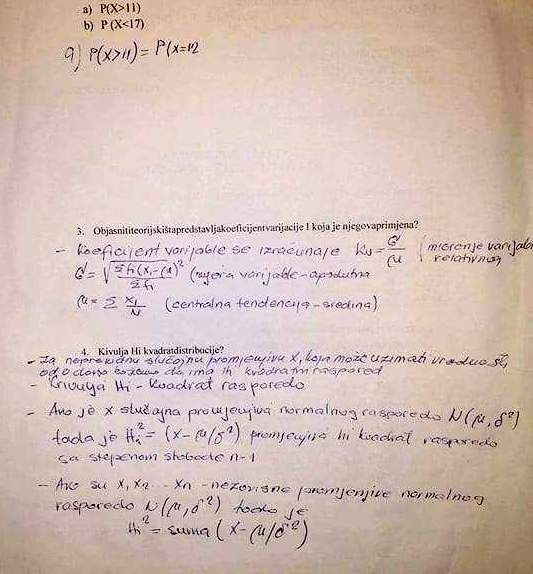 a) P(X>11)
b) P (X<17)
a) P(X>11) = P(X=12
3. Objasnititeorijskištapredstavljakoeficijentvarijacije I koja je njegovaprimjena?
- Koeficijent varijable se izračunaje Kv = σ/μ mjerenje varijabl relativnog
σ = √Σfi(xi-μ)²/Σfi (mjera varijable - apsolutna
μ = Σ xi/N (centralna tendencija - sredina)
4. Kivulja Hi kvadratdistribucije?
- Za neprekidnu slučajnu promjenjivu X, koja može uzimati vrednosti
od 0 do kažemo da ima hi kvadratni raspored
- Krivulja Hi - kvadrat rasporeda
- Ako je x slučajna promjenjiva normalnog rasporeda N(μ, σ²)
tada je Hi² = (x - μ/σ²) promjenjiva hi kvadrat rasporeda
sa stepenom slobode n-1
- Ako su x, x2 ... xn - nezavisne promjenjive normalnog
rasporeda N(μ, σ²) tada je
Hi² = suma (x - μ/σ²)